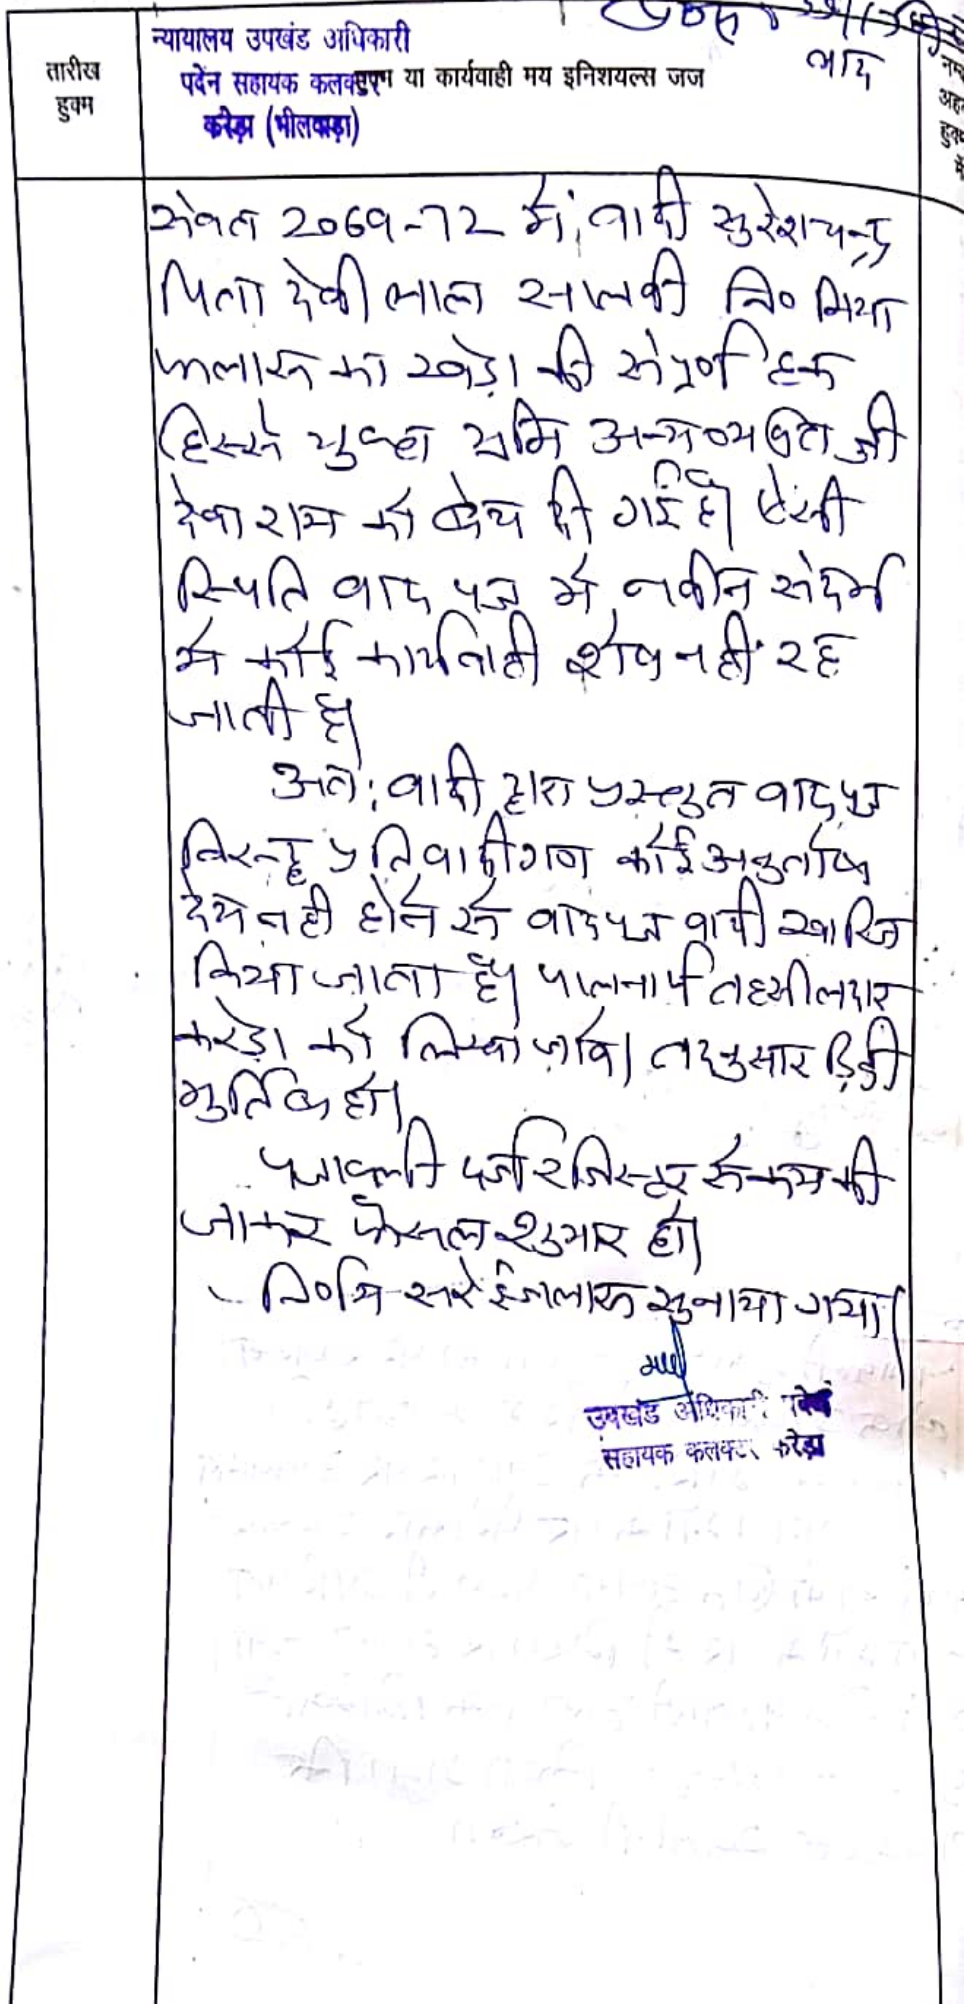 न्यायालय उपखंड अधिकारी
पदेन सहायक कलक्टर
हुक्म या कार्यवाही मय इनिशयल्स जज
करेड़ा (भीलवाड़ा)
तारीख
हुक्म
वाद
संवत 2069-72 में, वादी सुरेशचन्द्र
पिता देवी लाल सालवी नि०
का खेड़ा की संपूर्ण हक
हिस्से युक्त भूमि अन्य व्यक्ति श्री
देवा राम को बेच दी गई है। ऐसी
स्थिति वाद पत्र में नवीन संदर्भ
में कोई कार्यवाही शेष नहीं रह
जाती है।
अतः वादी द्वारा प्रस्तुत वाद पत्र
विरुद्ध प्रतिवादीगण कोई अनुतोष
देय नही होने से वादपत्र वादी खारिज
किया जाता है। पालनार्थ तहसीलदार
करेड़ा को लिखा जावे। तदनुसार डिक्री
मुर्तिब हो।
पत्रावली दर्ज रजिस्टर से कम की
जाकर फैसल शुमार हो।
निर्णय सरे ईजलास सुनाया गया।
उपखंड अधिकारी पदेन
सहायक कलक्टर करेड़ा